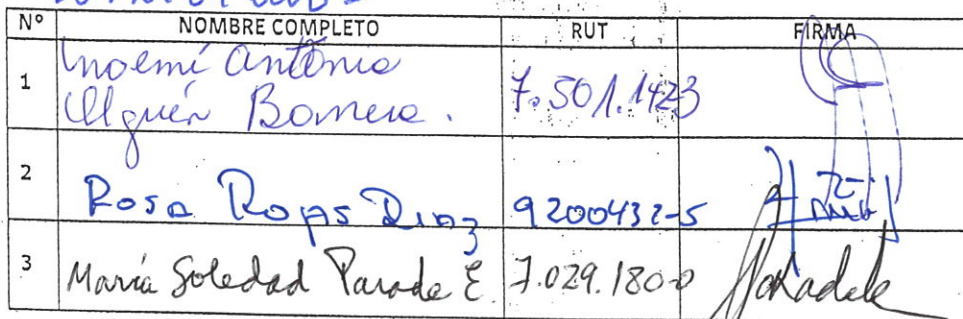 Nº NOMBRE COMPLETO RUT FIRMA
1 Noemí Antonia
Olguín Borneo. 7.501.142-3
2 Rosa Rojas Diaz 9200432-5
3 María Soledad Parada E. 7.029.180-0